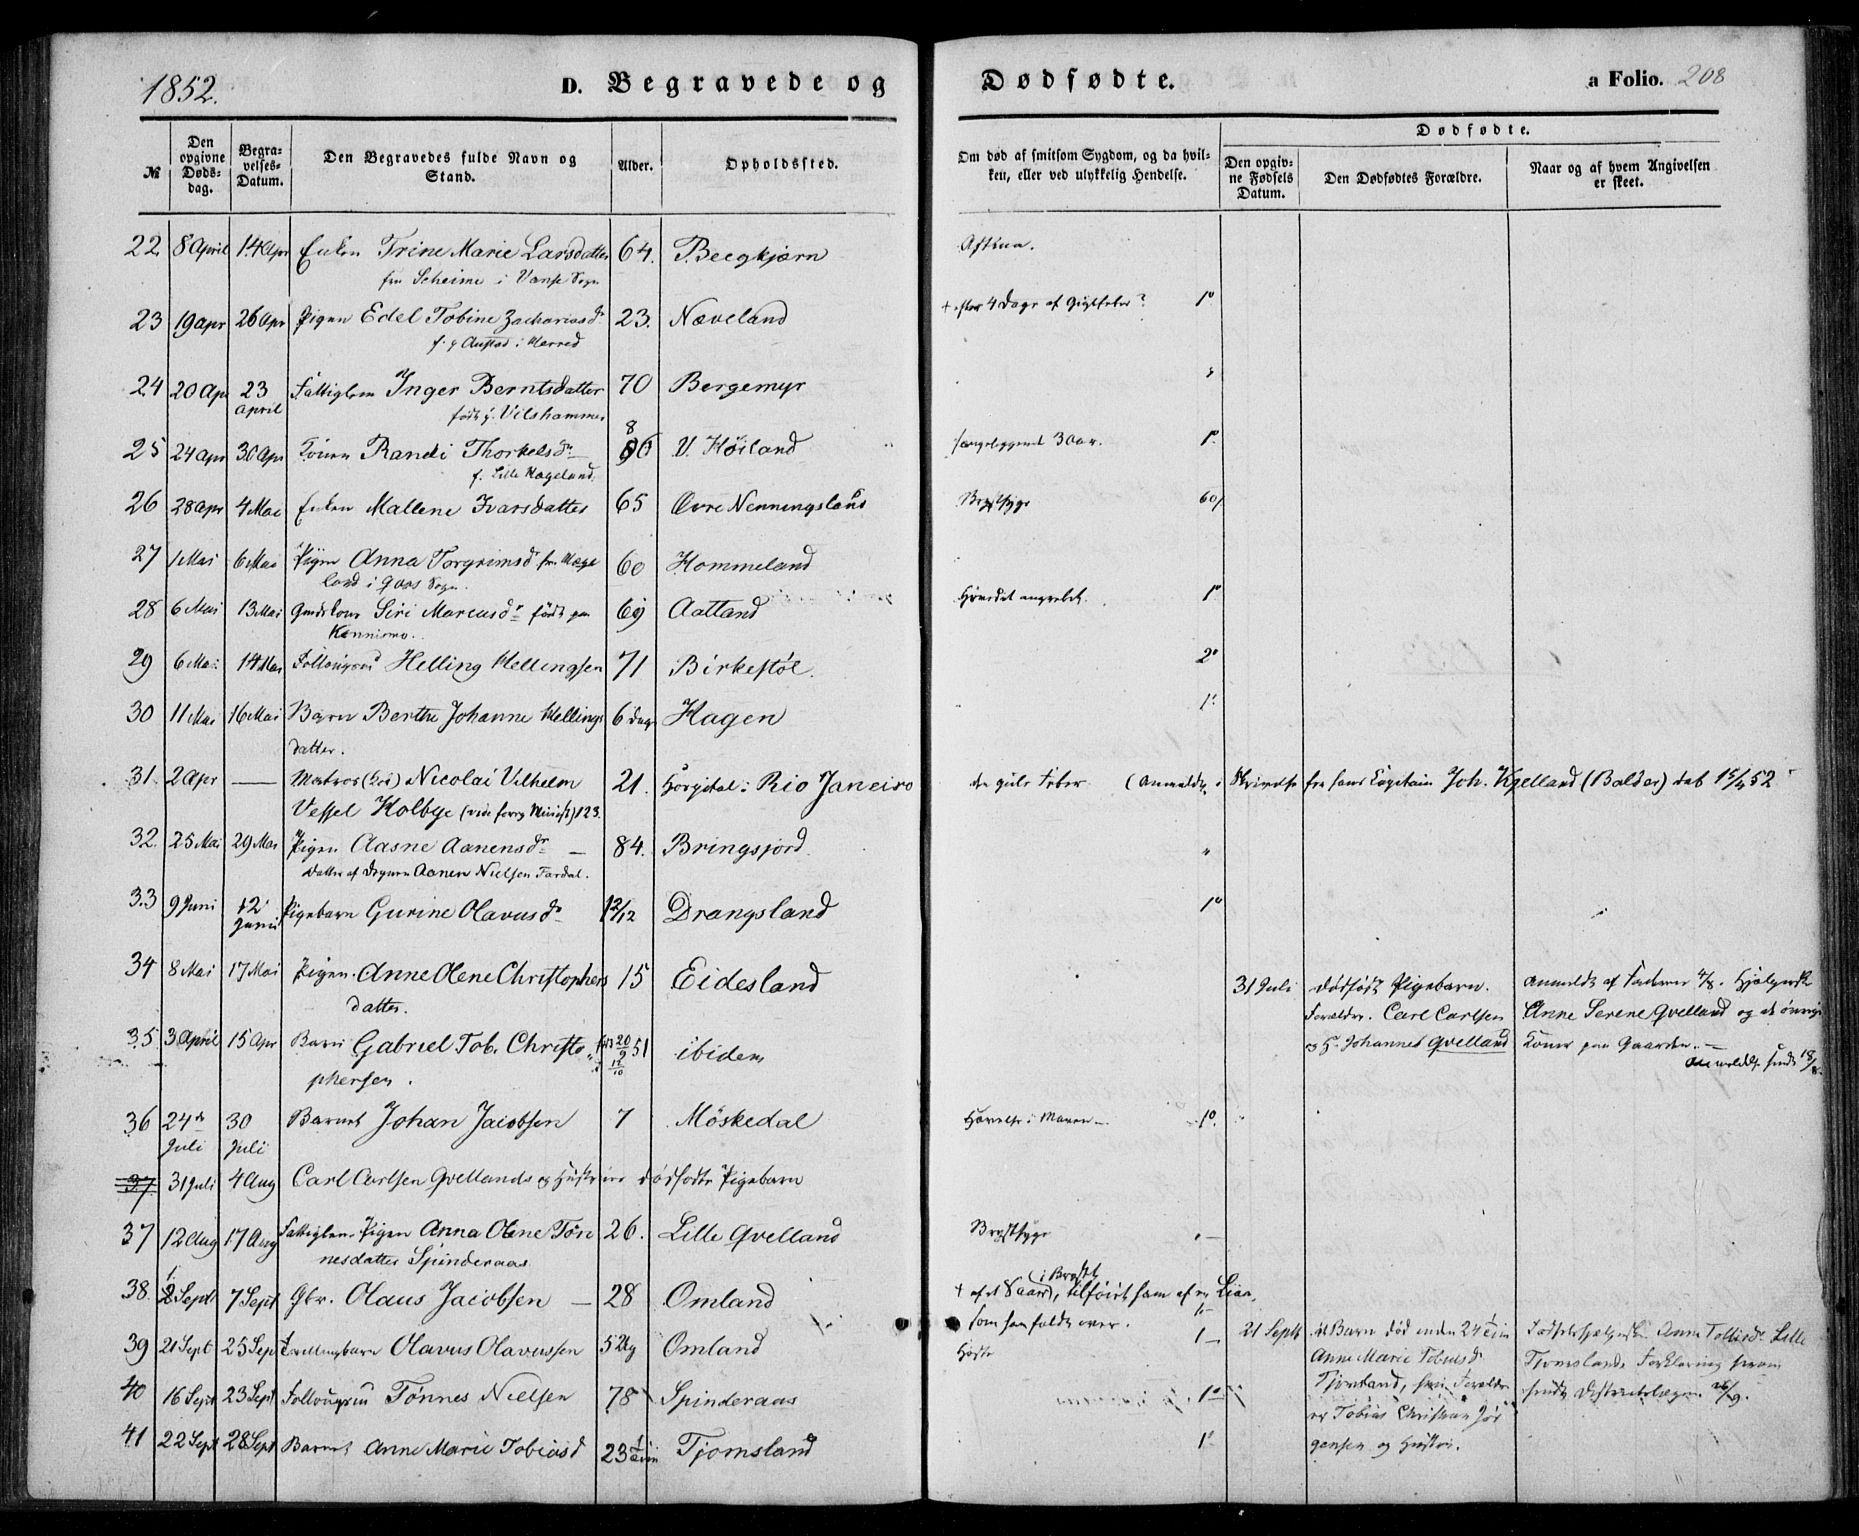 1852.
D. Begravede og
Dødfødte.
a Folio. 208
№
Den opgivne Døds-dag.
Begra-velses-Datum.
Den Begravedes fulde Navn og Stand.
Alder.
Opholdssted.
Om død af smitsom Sygdom, og da hvil-ken, eller ved ulykkelig Hendelse.
Dødfødte.
Den opgiv-ne Fødsels Datum.
Den Dødfødtes Forældre.
Naar og af hvem Angivelsen er skeet.
22 8 April 14 Apr Enken Trine Marie Larsdatter 64. Beegkjærn
fra Scheime i Vanse Sogn
23 19 Apr 26 Apr Pigen Edel Tobine Zachariasdr 23. Næveland + efter 4 Dage af Gigtfeber? 1°
f. p Austad i Herred
24 20 Apr 23 April Fattiglem Inger Berntsdatter 70 Bergemyr
født p. Vilshammer
25 24 Apr 30 Apr Konen Randi Thorkelsdr 86 V. Høiland sengeliggende 3 Aar. 1°
f. Lille Hageland
26 28 Apr 4 Mai Enken Mallene Ivarsdatter 65 Øvre Nenningsland Brystsyge
27 1 Mai 6 Mai Pigen Anna Torgrimsd fra Hæge 60 Hommeland
land i Sogn.
28 6 Mai 13 Mai Siri Marcusdr født paa 69 Aatland Hovedet angrebet. 1°
29 6 Mai 14 Mai Helling Hellingsen 71 Birkestøl. 2°
30 11 Mai 16 Mai Barn Berthe Johanne Hellings 6 Dage Hagen 1°
datter.
31. 2 Apr — Matros Nicolai Vilhelm 21. Hospital i Rio Janeiro de gule Feber (Anmeldt i Skrivelse fra hans Capitain Joh. Kjelland (Balder) dat 15/4 52
Vessel Holbye 123.
32. 25 Mai 29 Mai Pigen Aasne Aanensdr — 84. Bringsjord
Datter af Aanen Nielsen Fardal.
33 9 Juni 12 Juni Pigebarn Gurine Olavusdr 12/12 Drangsland 1°
34 8 Mai 17 Mai Pigen Anne Olene Christophers 15 Eidesland
datter.
31 Juli dødfødt Pigebarn. Anmeldt af Faderen 4/8.
Forældre. Carl Carlsen Anne Serene Qvelland og de øvrige
Johannes Qvelland Koner paa Gaarden. —
18/8.
35 3 April 15 Apr Barn Gabriel Tob. Christo 20/9 51 ibidem
phersen.
36 24de Juli 30 Juli Barnet Johan Jacobsen 7 Møskedal Hævelse i Maven — 1°
37 31 Juli 4 Aug Carl Carlsen Qvellands og Hustrues dødfødte Pigebarn
37 12 Aug 17 Aug Fattiglem Pigen Anna Olene Tøn 26. Lille Qvelland Brystsyge
nesdatter Spinderaas
38 2 Sept 7 Sept Gbr. Olaus Jacobsen — 28 Omland + af et Saar i Brystet, tilføiet ham af en Liaa,
som han faldt over.
39 21 Sept 25 Sep Tvillingbarn Olavus Olavussen 5 Omland Hoste 1 —
40 16 Sept 23 Sept Tønnes Nielsen 78 Spinderaas 1°
41 22 Sept 28 Sept Barnet Anne Marie Tobiasd 23 Tjomsland 1°
21 Septb et Barn død inden 24
Anne Marie Tobiasdr
Tjomsland, Forældre
er Tobias Christian Jør
gensen og Hustru.
Anne Tobiasdr Lille
Tjomslands Forklaring
26/9.